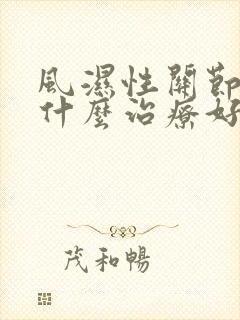 風濕性關節
什麼治療好
茂和暢